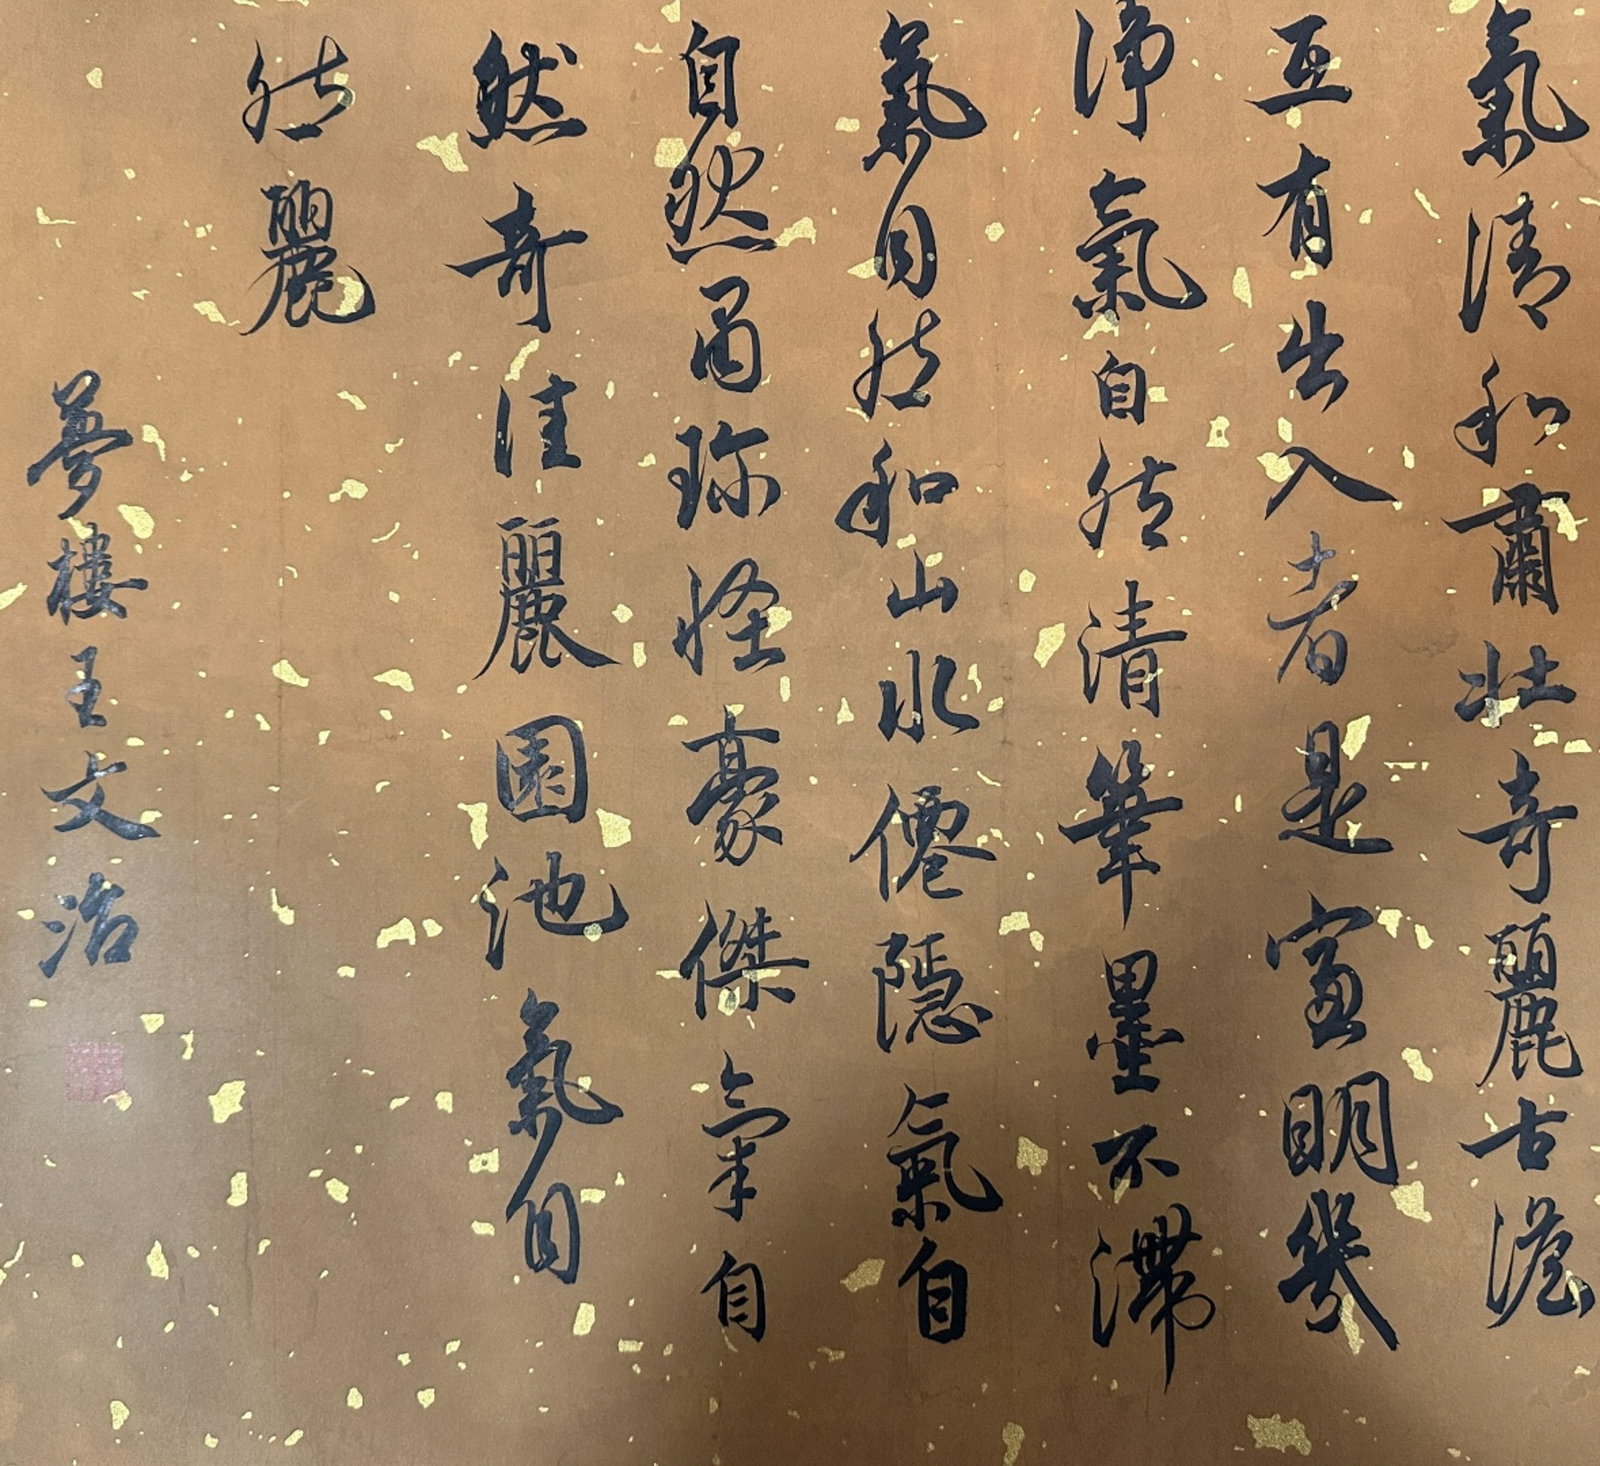 氣清和肅壯奇麗古澹
互有出入者是窗明幾
淨氣自然清筆墨不滯
氣自然和山水僊隱氣自
自然肅珍怪豪傑氣自
然奇佳麗園池氣自
然麗
夢樓王文治